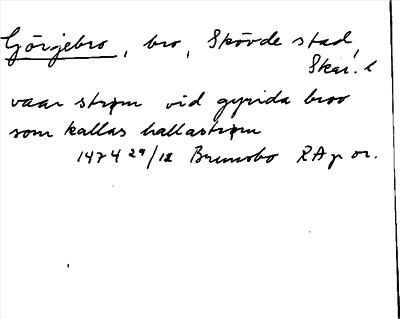 Görjebro, bro, Skövde stad,
Skar. l
vaar strøm vid gyrida broo
som kallas hallastrøm
1474 29/12 Brunsbo RAp or.